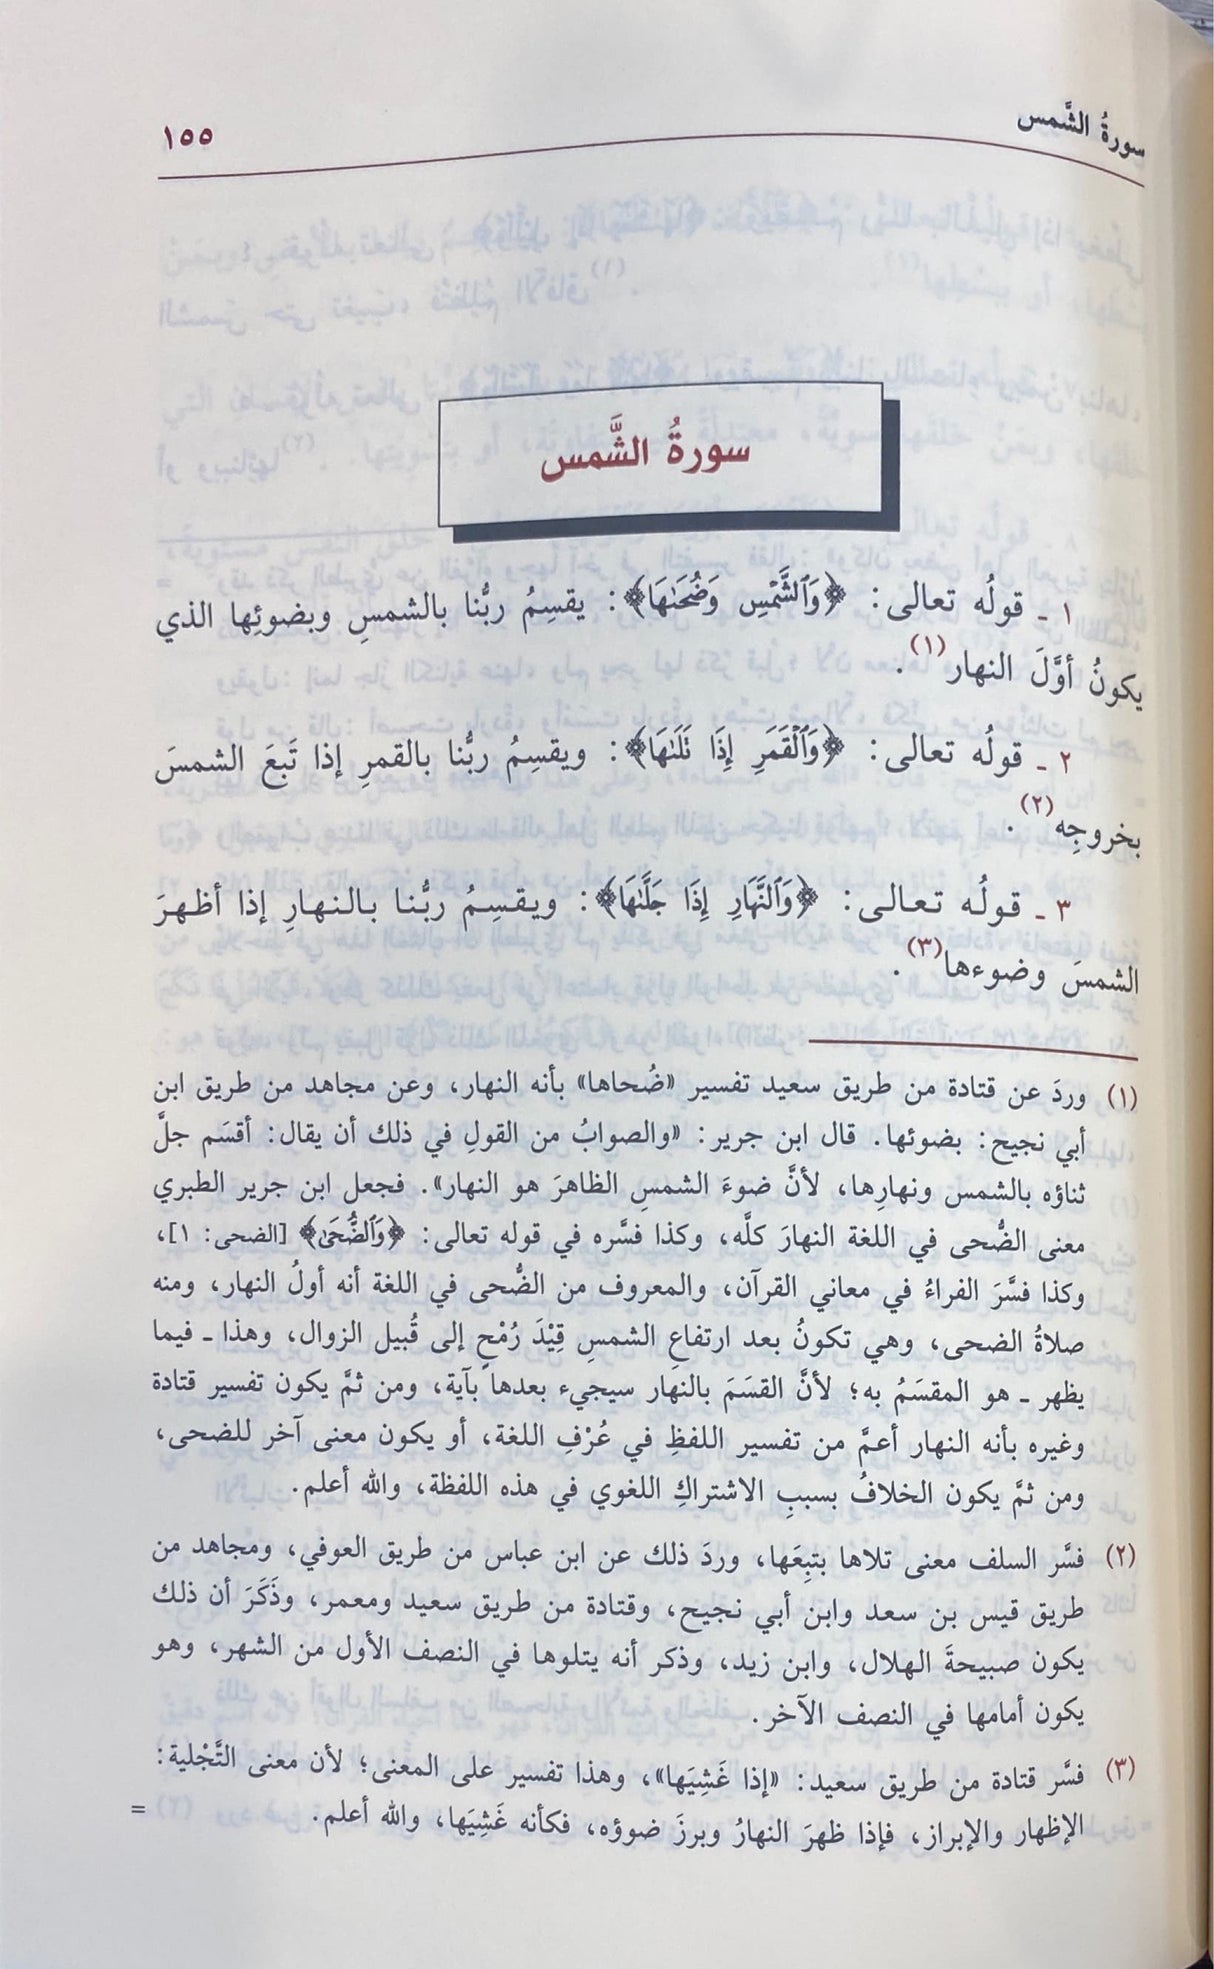 سورةُ الشَّمس
١٥٥
سورةُ الشَّمس
١ ـ قولُه تعالى: ﴿وَٱلشَّمْسِ وَضُحَىٰهَا﴾: يقسِمُ ربُّنا بالشمسِ وبضوئِها الذي
يكونُ أوَّلَ النهار(١).
٢ ـ قولُه تعالى: ﴿وَٱلْقَمَرِ إِذَا تَلَىٰهَا﴾: ويقسِمُ ربُّنا بالقمرِ إذا تَبعَ الشمسَ
بخروجِه(٢).
٣ ـ قولُه تعالى: ﴿وَٱلنَّهَارِ إِذَا جَلَّىٰهَا﴾: ويقسِمُ ربُّنا بالنهارِ إذا أظهرَ
الشمسَ وضوءها(٣).
(١) وردَ عن قتادة من طريق سعيد تفسير «ضُحاها» بأنه النهار، وعن مجاهد من طريق ابن
أبي نجيح: بضوئها. قال ابن جرير: «والصوابُ من القولِ في ذلك أن يقال: أقسَم جلَّ
ثناؤه بالشمس ونهارِها، لأنَّ ضوءَ الشمسِ الظاهرَ هو النهار». فجعل ابن جرير الطبري
معنى الضُّحى في اللغة النهارَ كلَّه، وكذا فسَّره في قوله تعالى: ﴿وَٱلضُّحَىٰ﴾ [الضحى: ١]،
وكذا فسَّرَ الفراءُ في معاني القرآن، والمعروف من الضُّحى في اللغة أنه أولُ النهار، ومنه
صلاةُ الضحى، وهي تكونُ بعد ارتفاعِ الشمسِ قِيْدَ رُمْحٍ إلى قُبيل الزوال، وهذا ـ فيما
يظهر ـ هو المقسَمُ به؛ لأنَّ القسَمَ بالنهار سيجيء بعدها بآية، ومن ثمَّ يكون تفسير قتادة
وغيره بأنه النهار أعمَّ من تفسير اللفظِ في عُرْفِ اللغة، أو يكون معنى آخر للضحى،
ومن ثمَّ يكون الخلافُ بسببِ الاشتراكِ اللغوي في هذه اللفظة، والله أعلم.
(٢) فسَّر السلف معنى تلاها بتبِعَها، وردَ ذلك عن ابن عباس من طريق العوفي، ومجاهد من
طريق قيس بن سعد وابن أبي نجيح، وقتادة من طريق سعيد ومعمر، وذَكَرَ أن ذلك
يكون صبيحةَ الهلال، وابن زيد، وذكر أنه يتلوها في النصف الأول من الشهر، وهو
يكون أمامها في النصف الآخر.
(٣) فسَّر قتادة من طريق سعيد: «إذا غَشِيَها»، وهذا تفسير على المعنى؛ لأن معنى التَّجْلية:
الإظهار والإبراز، فإذا ظهرَ النهارُ وبرزَ ضوؤه، فكأنه غَشِيَها، والله أعلم. =